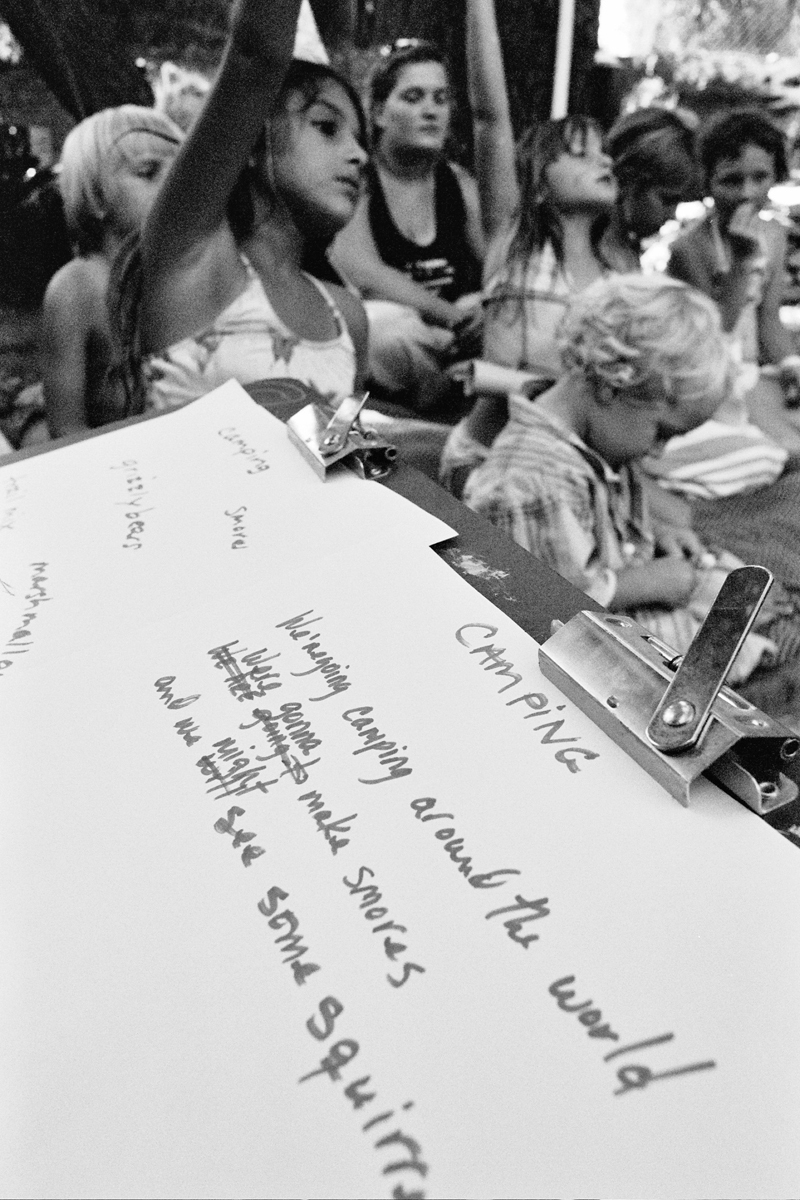 camping
smores
grizzly bears
CAMPiNG
We're going camping around the world
We're gonna make smores
and we might see some squirr